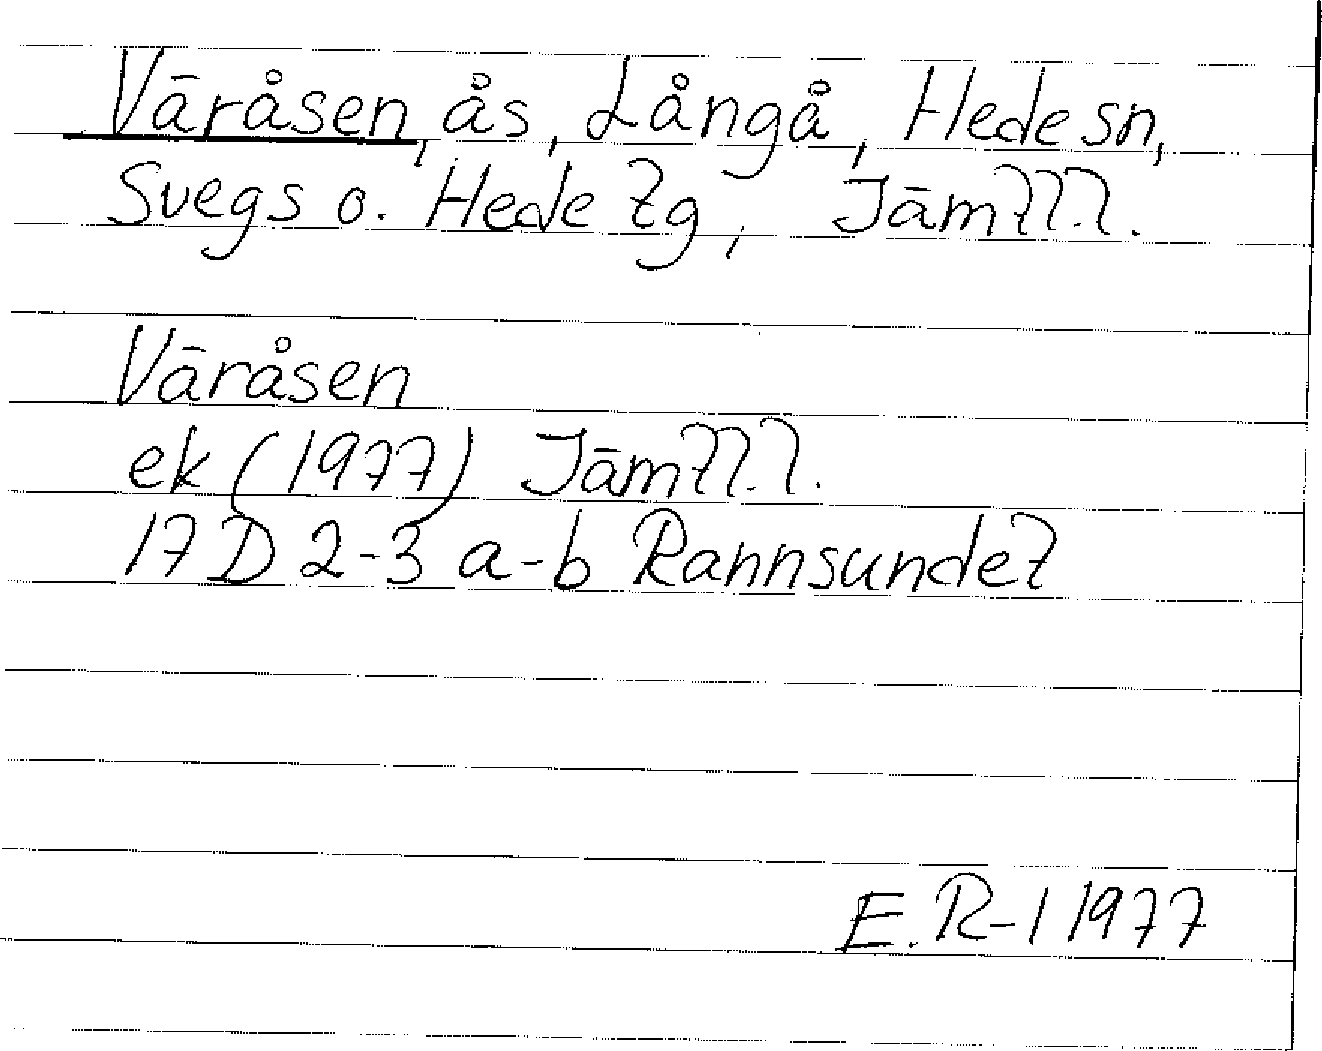 Väråsen, ås, Långå, Hede sn,
Svegs o. Hede tg, Jämtl.l.
Väråsen
ek (1977) Jämtl.l.
17 D 2-3 a-b Rannsundet
E. R-l 1977